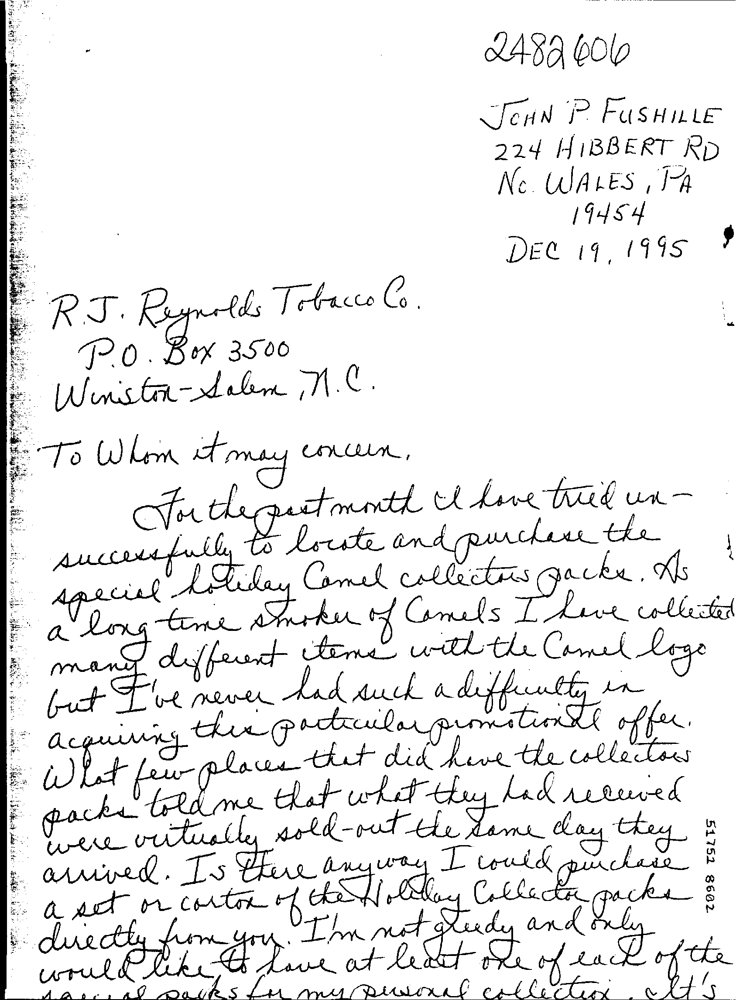 2482606
JOHN P. FUSHILLE
224 HIBBERT RD
No. WALES, PA
19454
DEC 19, 1995
R.J. Reynolds Tobacco Co.
P.O. Box 3500
Winston-Salem, N.C.
To Whom it may concern,
For the past month I have tried un-
successfully to locate and purchase the
special holiday Camel collectors packs. As
a long time smoker of Camels I have collected
many different items with the Camel logo
but I've never had such a difficulty in
acquiring this particular promotional offer.
What few places that did have the collectors
packs told me that what they had received
were virtually sold-out the same day they
arrived. Is there anyway I could purchase
a set or carton of the Holiday Collector packs
directly from you. I'm not greedy and only
would like to have at least one of each of the
special packs for my personal collection. It's
51751 8602